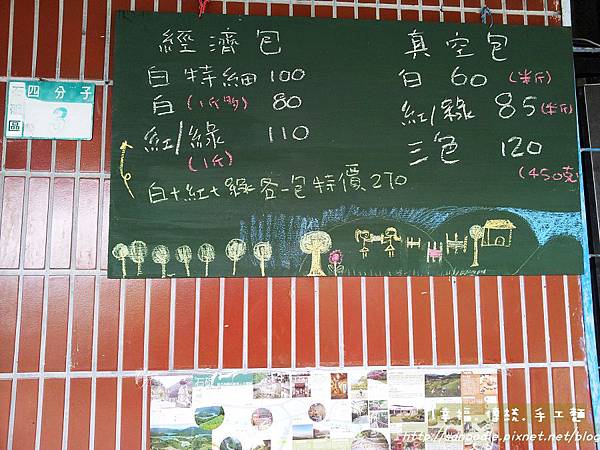 經濟包
白特細 100
白(1斤的) 80
紅/綠 110
(1斤)
白+紅+綠各一包特價270
真空包
白 60 (半斤)
紅/綠 85 (半斤)
三色 120
(450克)
四分子
區
幸福.傳統.手工麵